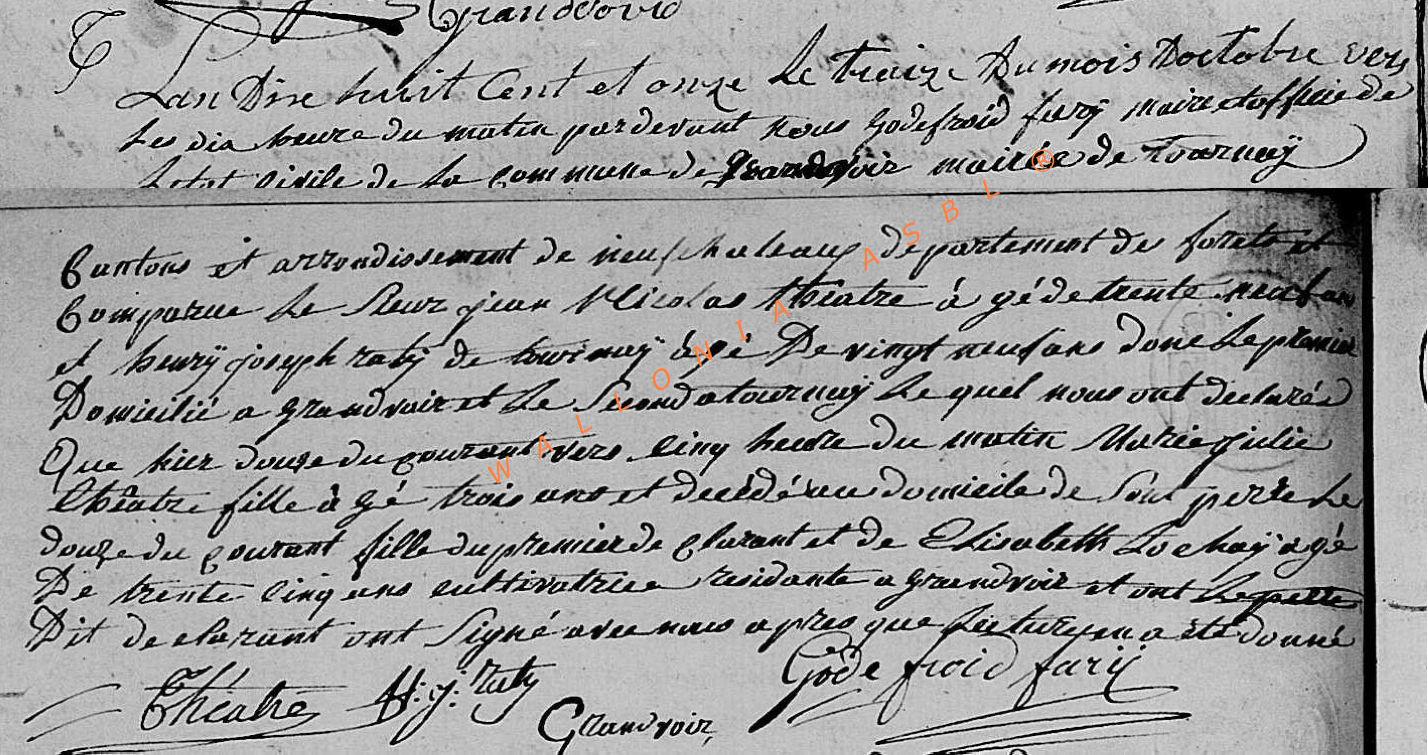 Grandvoir
Lan Dixe huit Cent et onze Le treize Du mois Doctobre vers
Les dix heure du matin pardevant nous Godefroid farÿ maire et officie de
Letat Civile de La Commune de Grandvoir mairie de Tournaÿ
Cantons et arrondissement de neufchateaux departement des forets et
Comparue Le Sieur jean Nicolas théatre à gé de trente neuf an
et henrÿ joseph ratÿ de tournaÿ âgé De vingt neuf ans dont Le premier
Domicilié a grandvoir et Le Second a tournaÿ Le quel nous ont declaré
Que hier douze du courant vers Cinq heure du matin Marie julie
théâtre fille à gé trois ans et decédé au domicile de Son perre Le
douze du courant fille du premier de clarant et de Elisabeth Lochaÿ a gé
De trente Cinq ans cultivatrice residante a grandvoir et ont
Dit declarant ont Signé avec nous apres que Lecture en a été donné
Théatre H. j. Ratÿ Godefroid farÿ
Grandvoir
WALLONIA ASBL ®